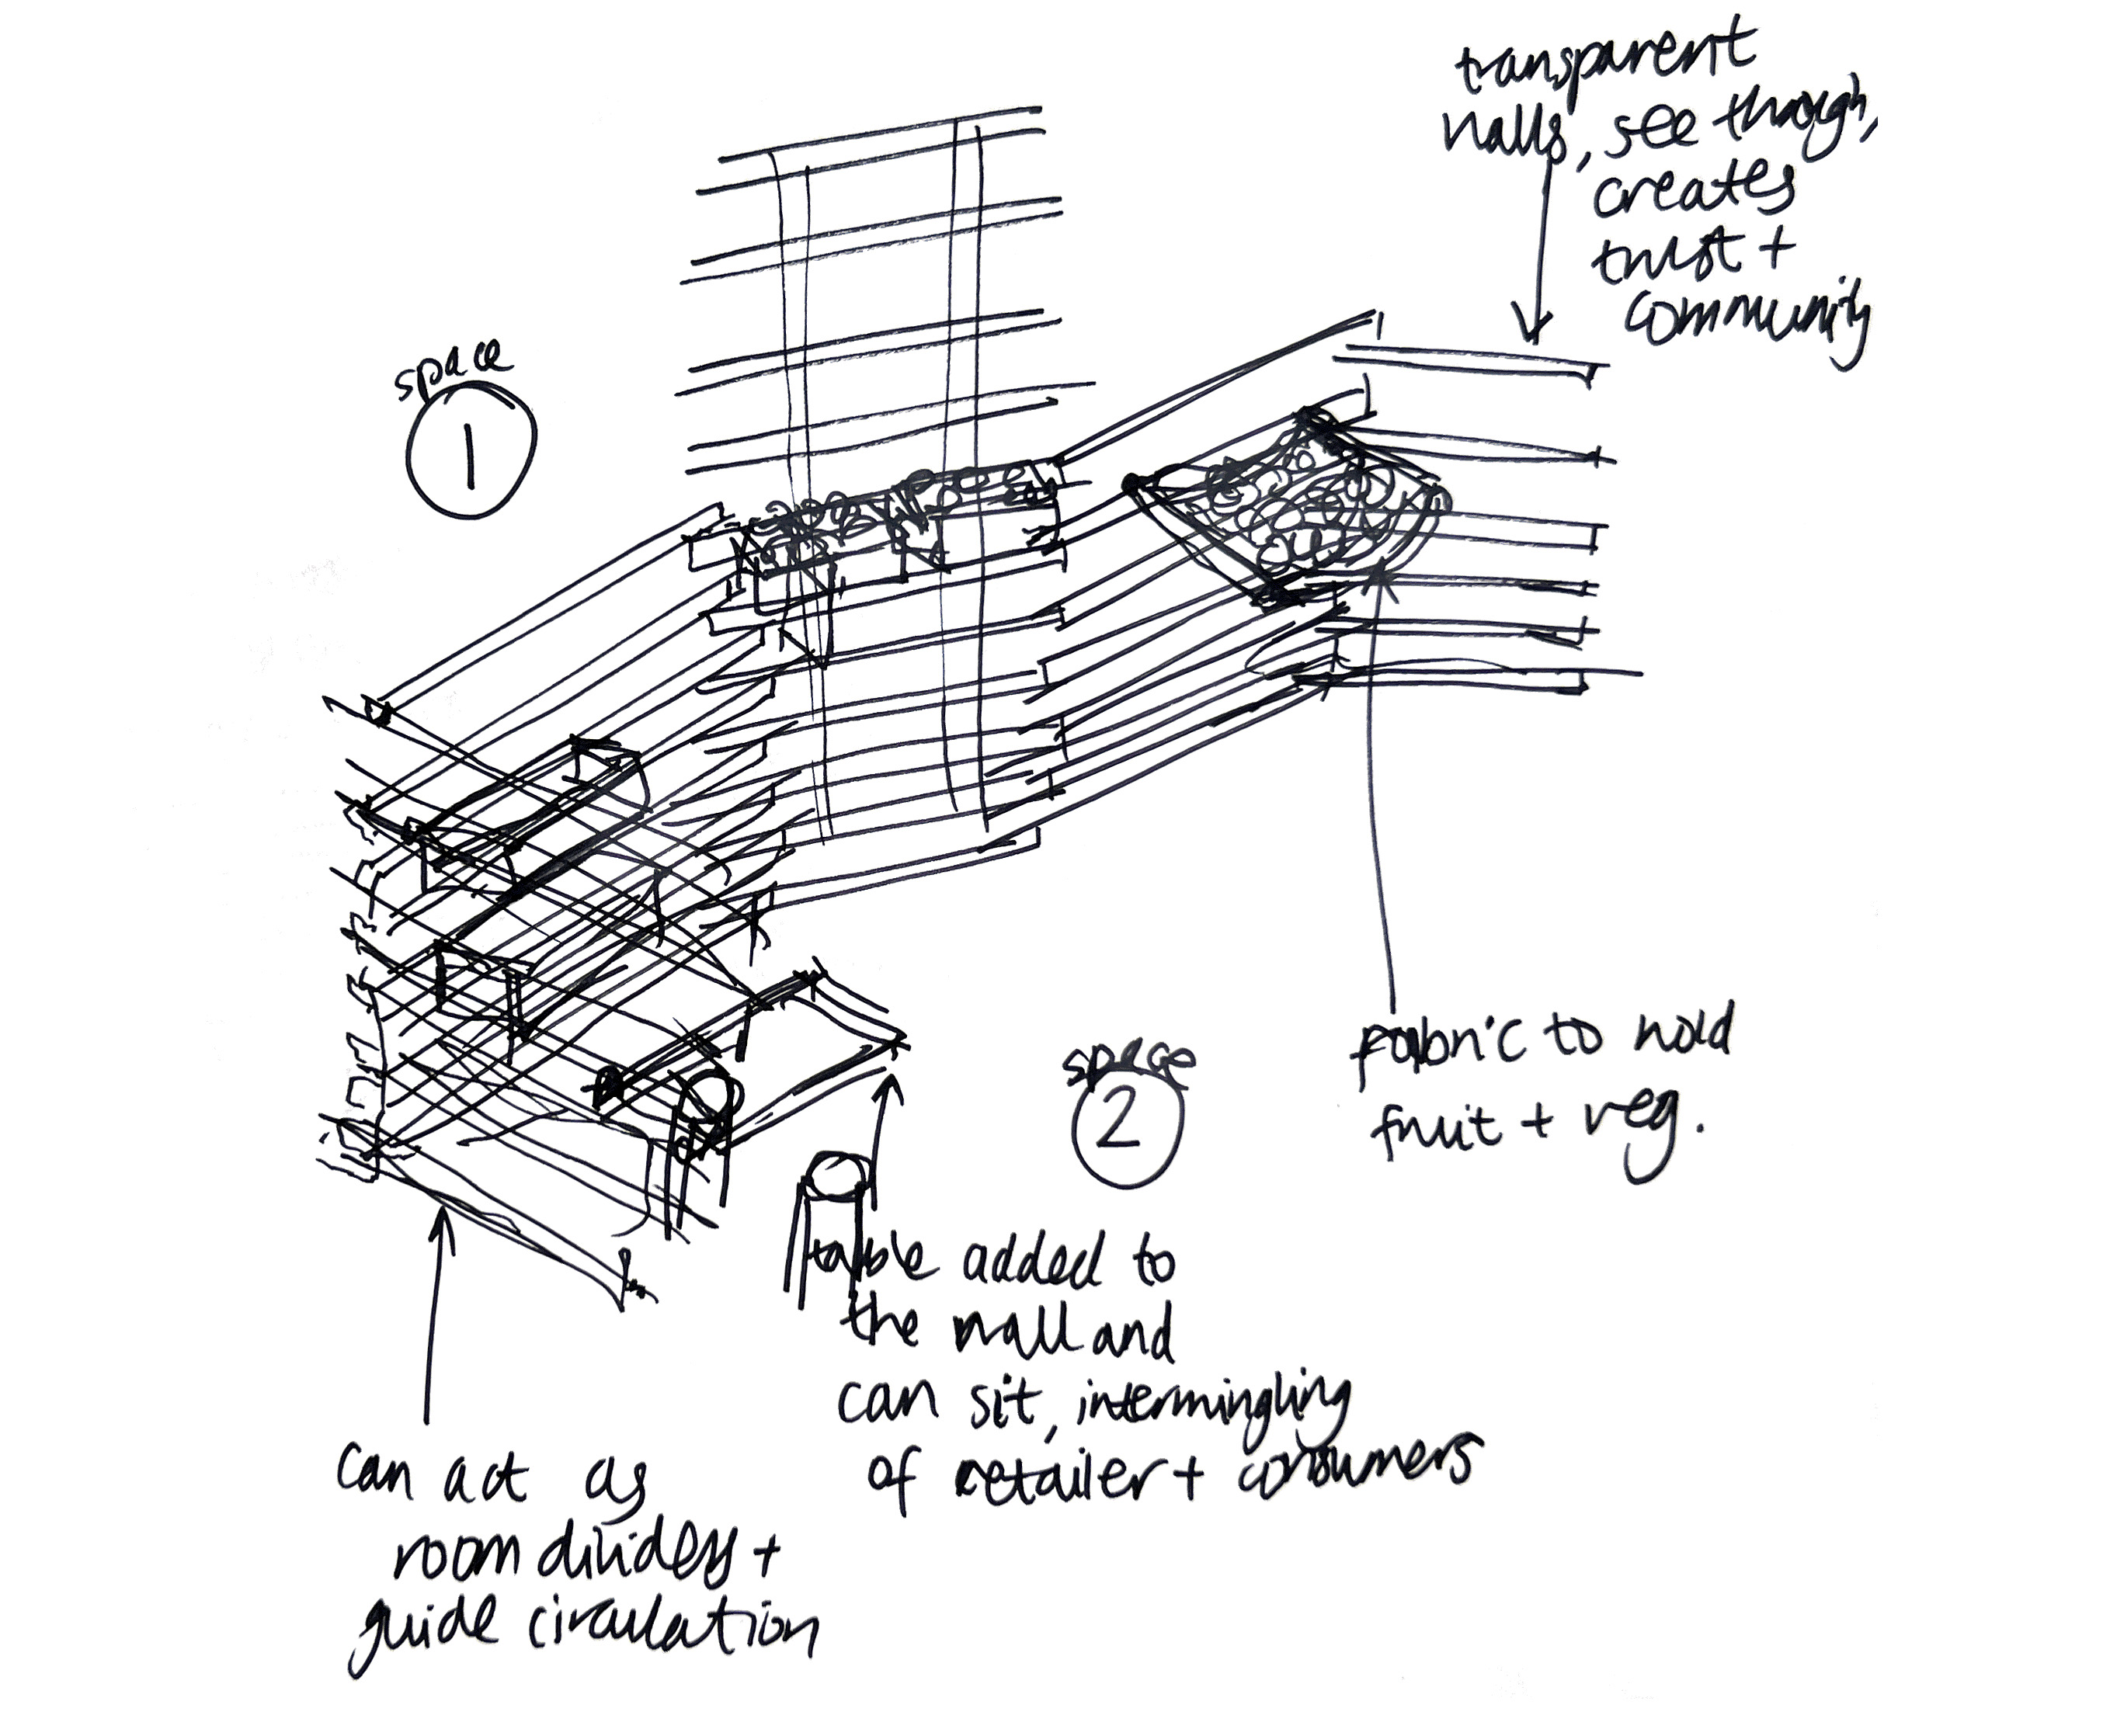 transparent
walls, see though,
creates
trust +
community
space
1
space
2
fabric to hold
fruit + veg.
table added to
the wall and
can sit, intermingling
of retailer + consumers
can act as
room dividers +
guide circulation